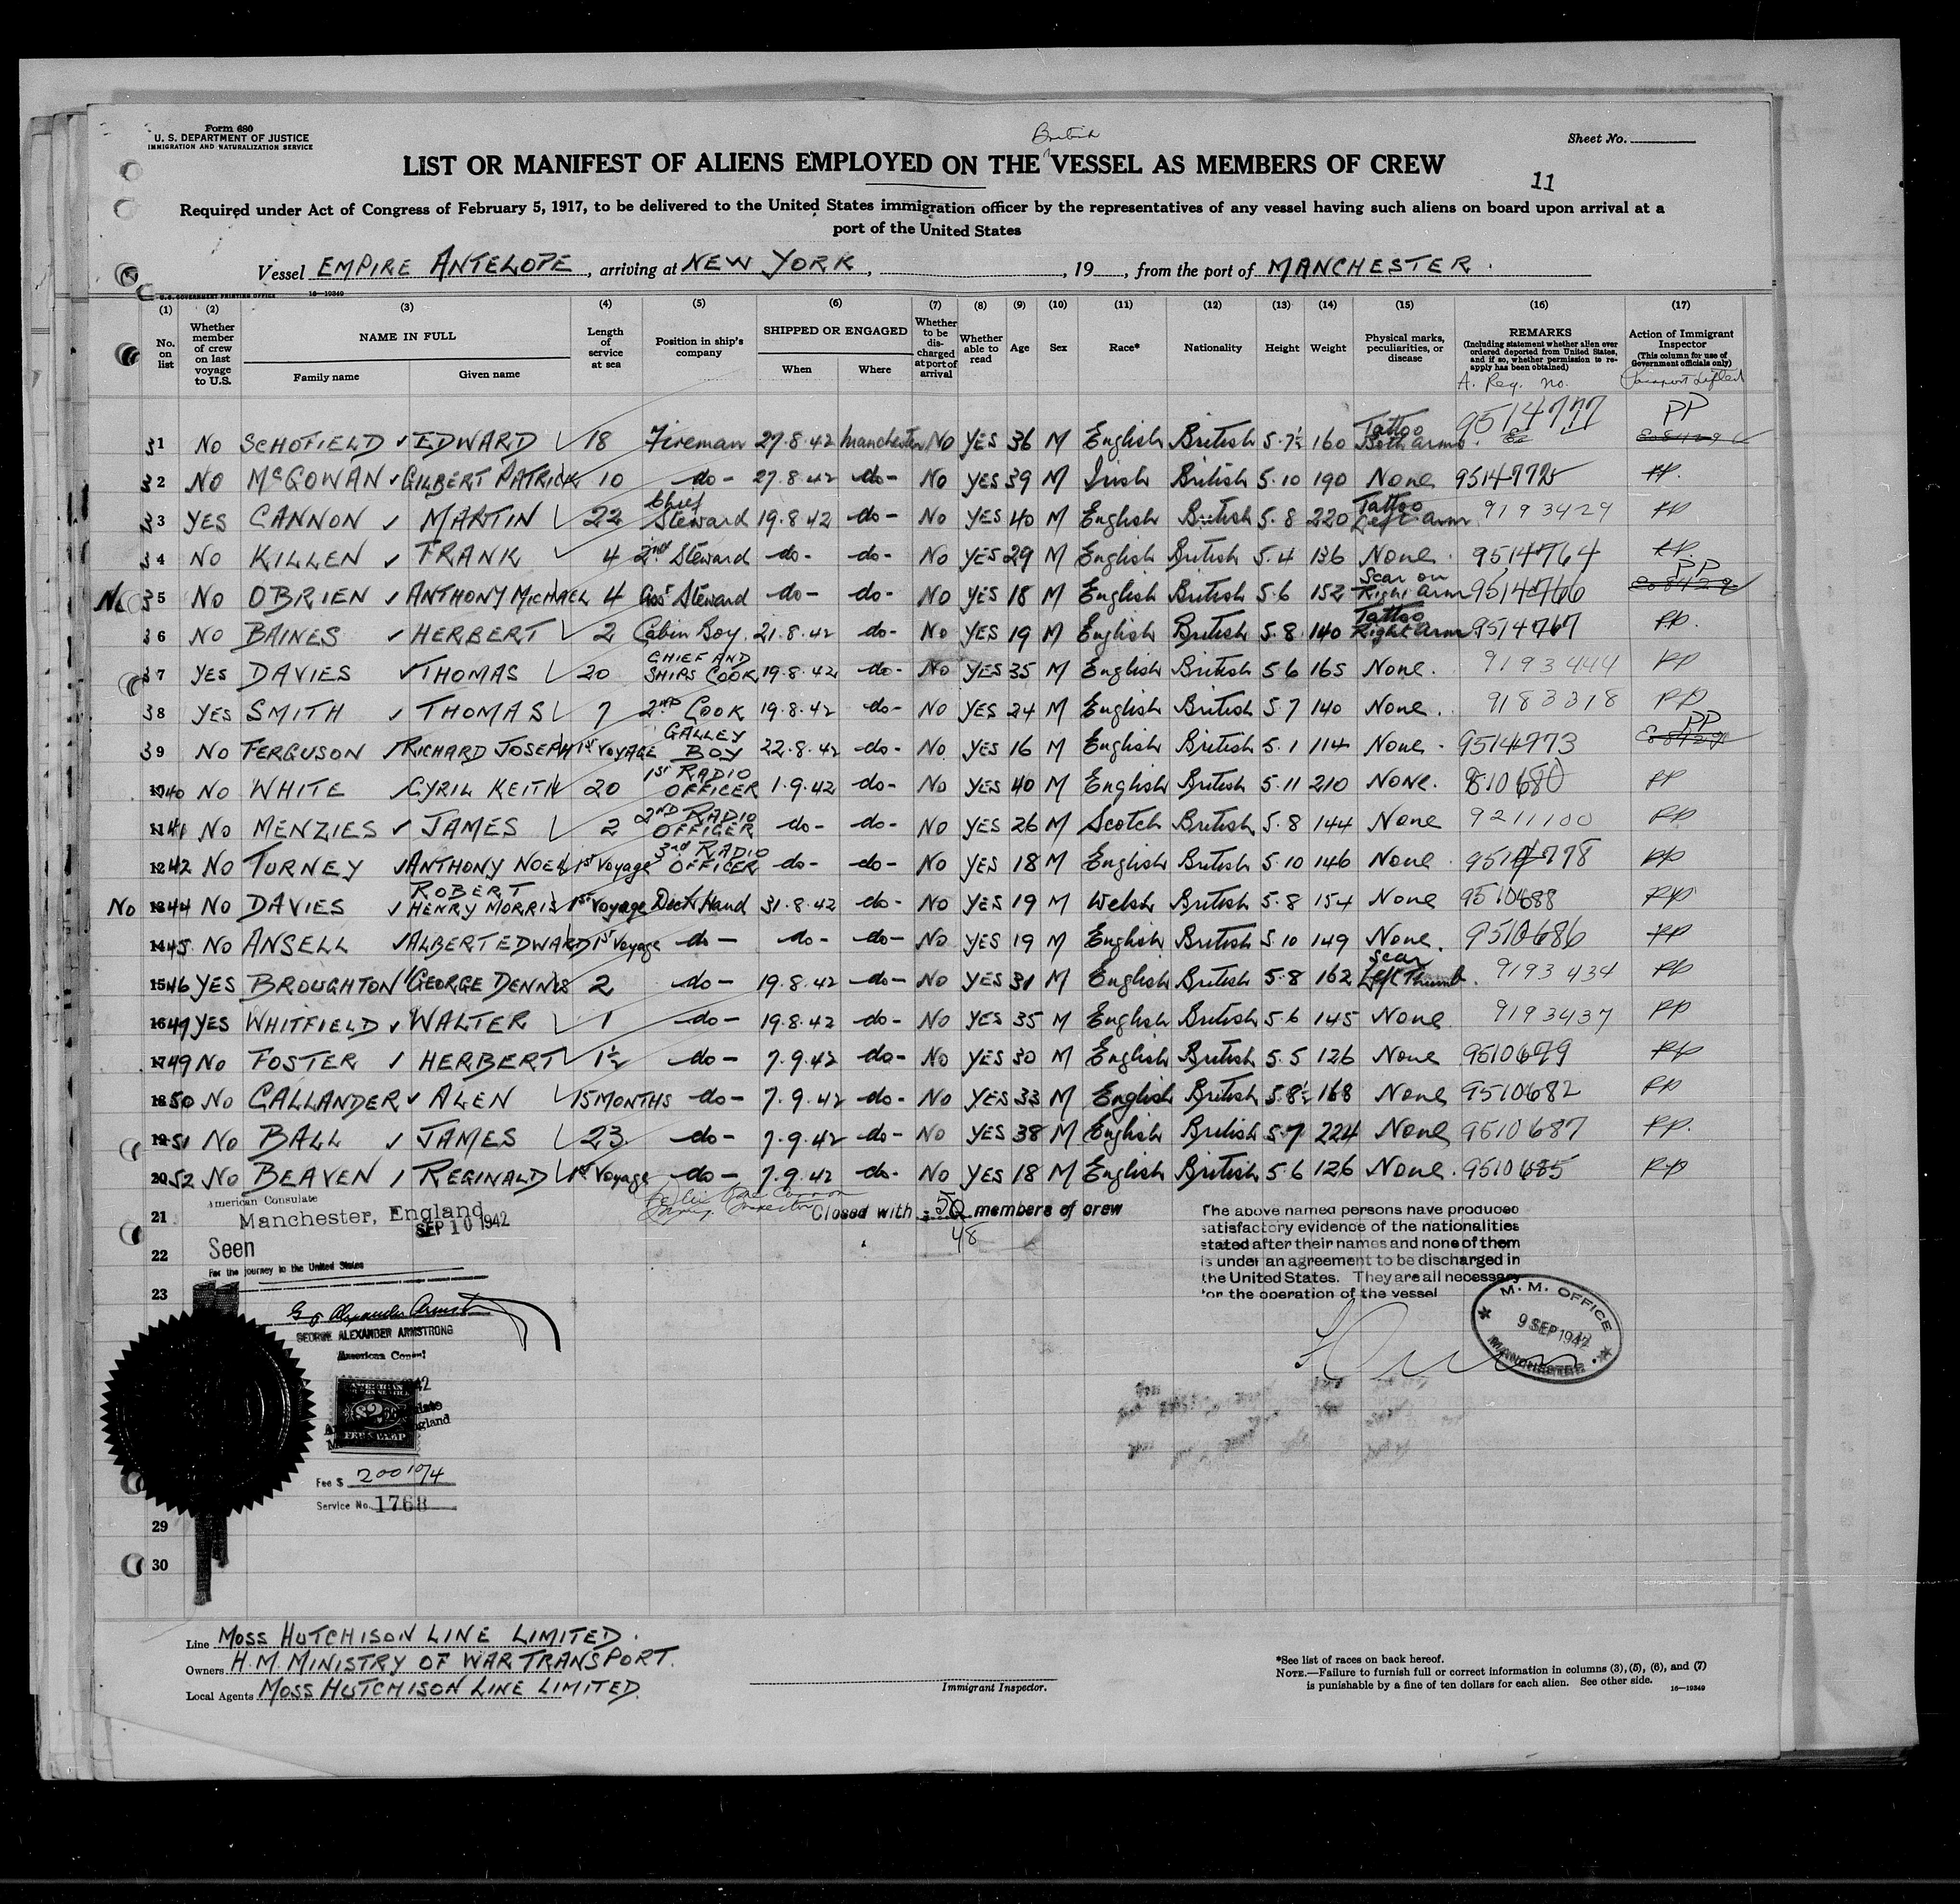 Form 680
U. S. DEPARTMENT OF JUSTICE
IMMIGRATION AND NATURALIZATION SERVICE
Sheet No.
British
LIST OR MANIFEST OF ALIENS EMPLOYED ON THE VESSEL AS MEMBERS OF CREW
11
Required under Act of Congress of February 5, 1917, to be delivered to the United States immigration officer by the representatives of any vessel having such aliens on board upon arrival at a
port of the United States
Vessel EMPIRE ANTELOPE, arriving at NEW YORK, , 19 , from the port of MANCHESTER.
U.S. GOVERNMENT PRINTING OFFICE 16—19349
(1) No. on list
(2) Whether member of crew on last voyage to U.S.
(3) NAME IN FULL Family name Given name
(4) Length of service at sea
(5) Position in ship's company
(6) SHIPPED OR ENGAGED When Where
(7) Whether to be discharged at port of arrival
(8) Whether able to read
(9) Age
(10) Sex
(11) Race*
(12) Nationality
(13) Height
(14) Weight
(15) Physical marks, peculiarities, or disease
(16) REMARKS (Including statement whether alien ever ordered deported from United States, and if so, whether permission to reapply has been obtained) A. Reg. no.
(17) Action of Immigrant Inspector (This column for use of Government officials only) Passport Lifted
31 NO SCHOFIELD EDWARD 18 Fireman 27.8.42 Manchester NO YES 36 M English British 5.7½ 160 Tattoo Both arms. 9514777 PP
32 NO McGOWAN GILBERT PATRICK 10 -do- 27.8.42 -do- NO YES 39 M Irish British 5.10 190 None 9514775 PP.
33 YES CANNON MARTIN 22 Chief Steward 19.8.42 -do- NO YES 40 M English British 5.8 220 Tattoo Left arm 9193429 PP
34 NO KILLEN FRANK 4 2nd Steward -do- -do- NO YES 29 M English British 5.4 136 None. 9514764 PP.
35 NO OBRIEN ANTHONY MICHAEL 4 Ass Steward -do- -do- NO YES 18 M English British 5.6 152 Scar on Right Arm 9514766 PP
36 NO BAINES HERBERT 2 Cabin Boy. 21.8.42 -do- NO YES 19 M English British 5.8 140 Tattoo Right Arm 9514767 PP.
37 YES DAVIES THOMAS 20 CHIEF AND SHIPS COOK 19.8.42 -do- NO YES 35 M English British 5.6 165 None. 9193444 PP
38 YES SMITH THOMAS 7 2ND COOK 19.8.42 do- NO YES 24 M English British 5.7 140 None. 9183318 PP
39 NO FERGUSON RICHARD JOSEPH 1st VOYAGE GALLEY BOY 22.8.42 -do- NO YES 16 M English British 5.1 114 None. 9514773 PP
40 NO WHITE CYRIL KEITH 20 1st RADIO OFFICER 1.9.42 do- NO YES 40 M English British 5.11 210 NONE. 810680 PP
41 NO MENZIES JAMES 2 2ND RADIO OFFICER -do- -do- NO YES 26 M Scotch British 5.8 144 None 9211100 PP
42 NO TURNEY ANTHONY NOEL 1st Voyage 3rd RADIO OFFICER -do- -do- NO YES 18 M English British 5.10 146 None. 9514778 PP
No 44 NO DAVIES ROBERT HENRY MORRIS 1st Voyage Deck Hand 31.8.42 do- NO YES 19 M Welsh British 5.8 154 None 9510688 PP
45 NO ANSELL ALBERT EDWARD 1st Voyage -do- -do- -do- NO YES 19 M English British 5.10 149 None. 9510686 PP
46 YES BROUGHTON GEORGE DENNIS 2 -do- 19.8.42 -do- NO YES 31 M English British 5.8 162 Scar Left Thumb. 9193434 PP
47 YES WHITFIELD WALTER 1 -do- 19.8.42 -do- NO YES 35 M English British 5.6 145 None. 9193437 PP
49 NO FOSTER HERBERT 1½ do- 7.9.42 -do- NO YES 30 M English British 5.5 126 None 9510679 PP
50 NO CALLANDER ALEN 15 MONTHS -do- 7.9.42 -do- NO YES 33 M English British 5.8½ 168 None 9510682 PP
51 NO BALL JAMES 23 -do- 7.9.42 -do- NO YES 38 M English British 5.7 224 None 9510687 PP.
52 NO BEAVEN REGINALD 1st Voyage -do- 7.9.42 do- NO YES 18 M English British 5.6 126 None. 9510685 PP
American Consulate
21 Manchester, England
SEP 10 1942
Closed with 50 members of crew
48
22 Seen
For the journey to the United States
23
GEORGE ALEXANDER ARMSTRONG
American Consul
The above named persons have produced
satisfactory evidence of the nationalities
stated after their names and none of them
is under an agreement to be discharged in
the United States. They are all necessary
for the operation of the vessel
M. M. OFFICE
9 SEP 1942
MANCHESTER
AMERICAN
FEE STAMP
Fee $ 2 00 10/4
Service No. 1768
29
30
Line MOSS HUTCHISON LINE LIMITED.
Owners H.M MINISTRY OF WAR TRANSPORT.
Local Agents MOSS HUTCHISON LINE LIMITED.
Immigrant Inspector.
*See list of races on back hereof.
NOTE.—Failure to furnish full or correct information in columns (3), (5), (6), and (7)
is punishable by a fine of ten dollars for each alien. See other side. 16—19349